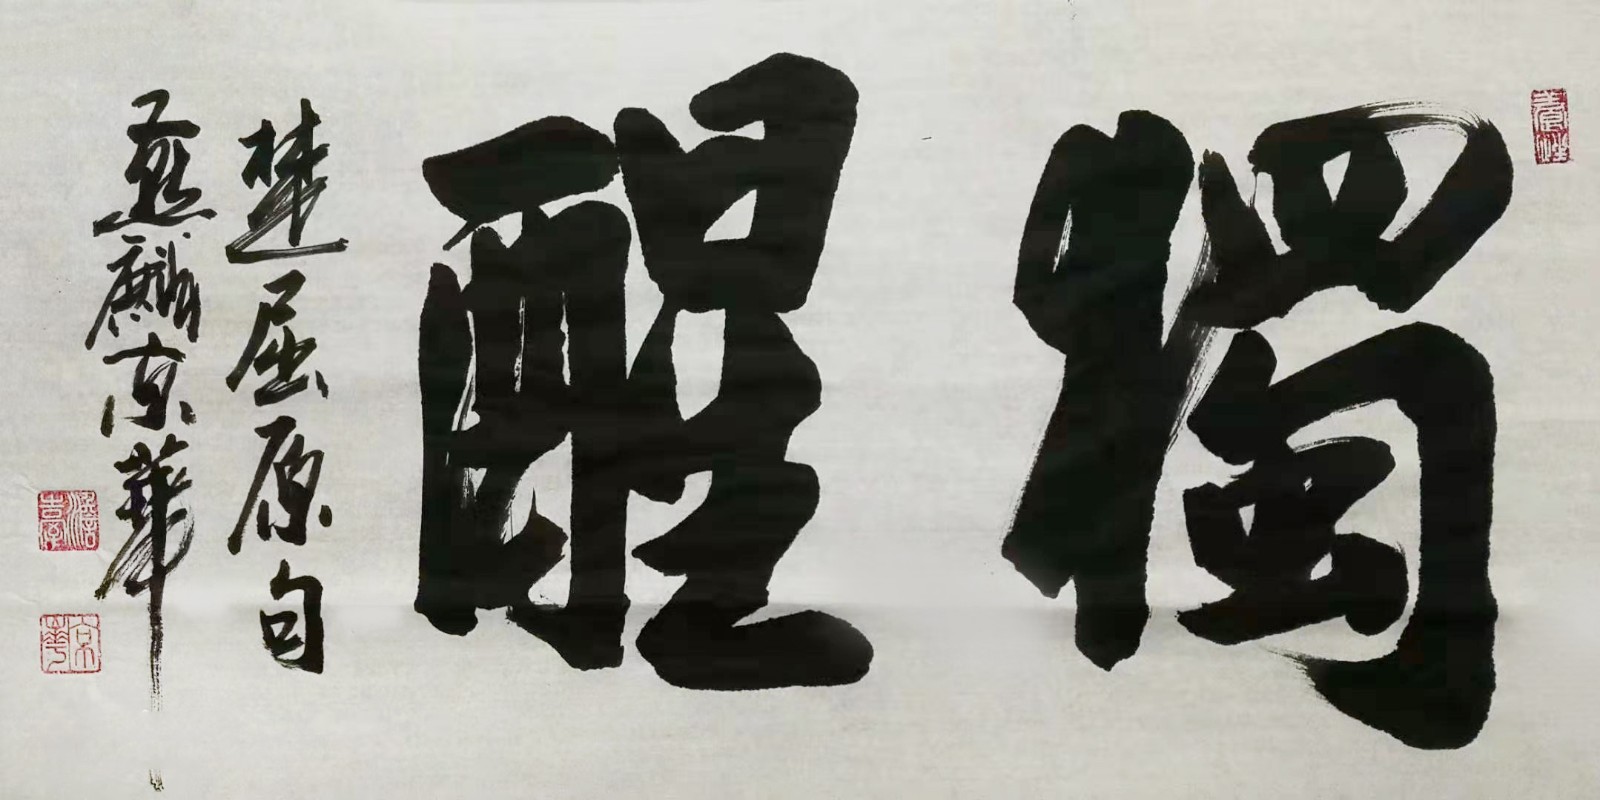 獨醒
楚屈原句
燕麟京華